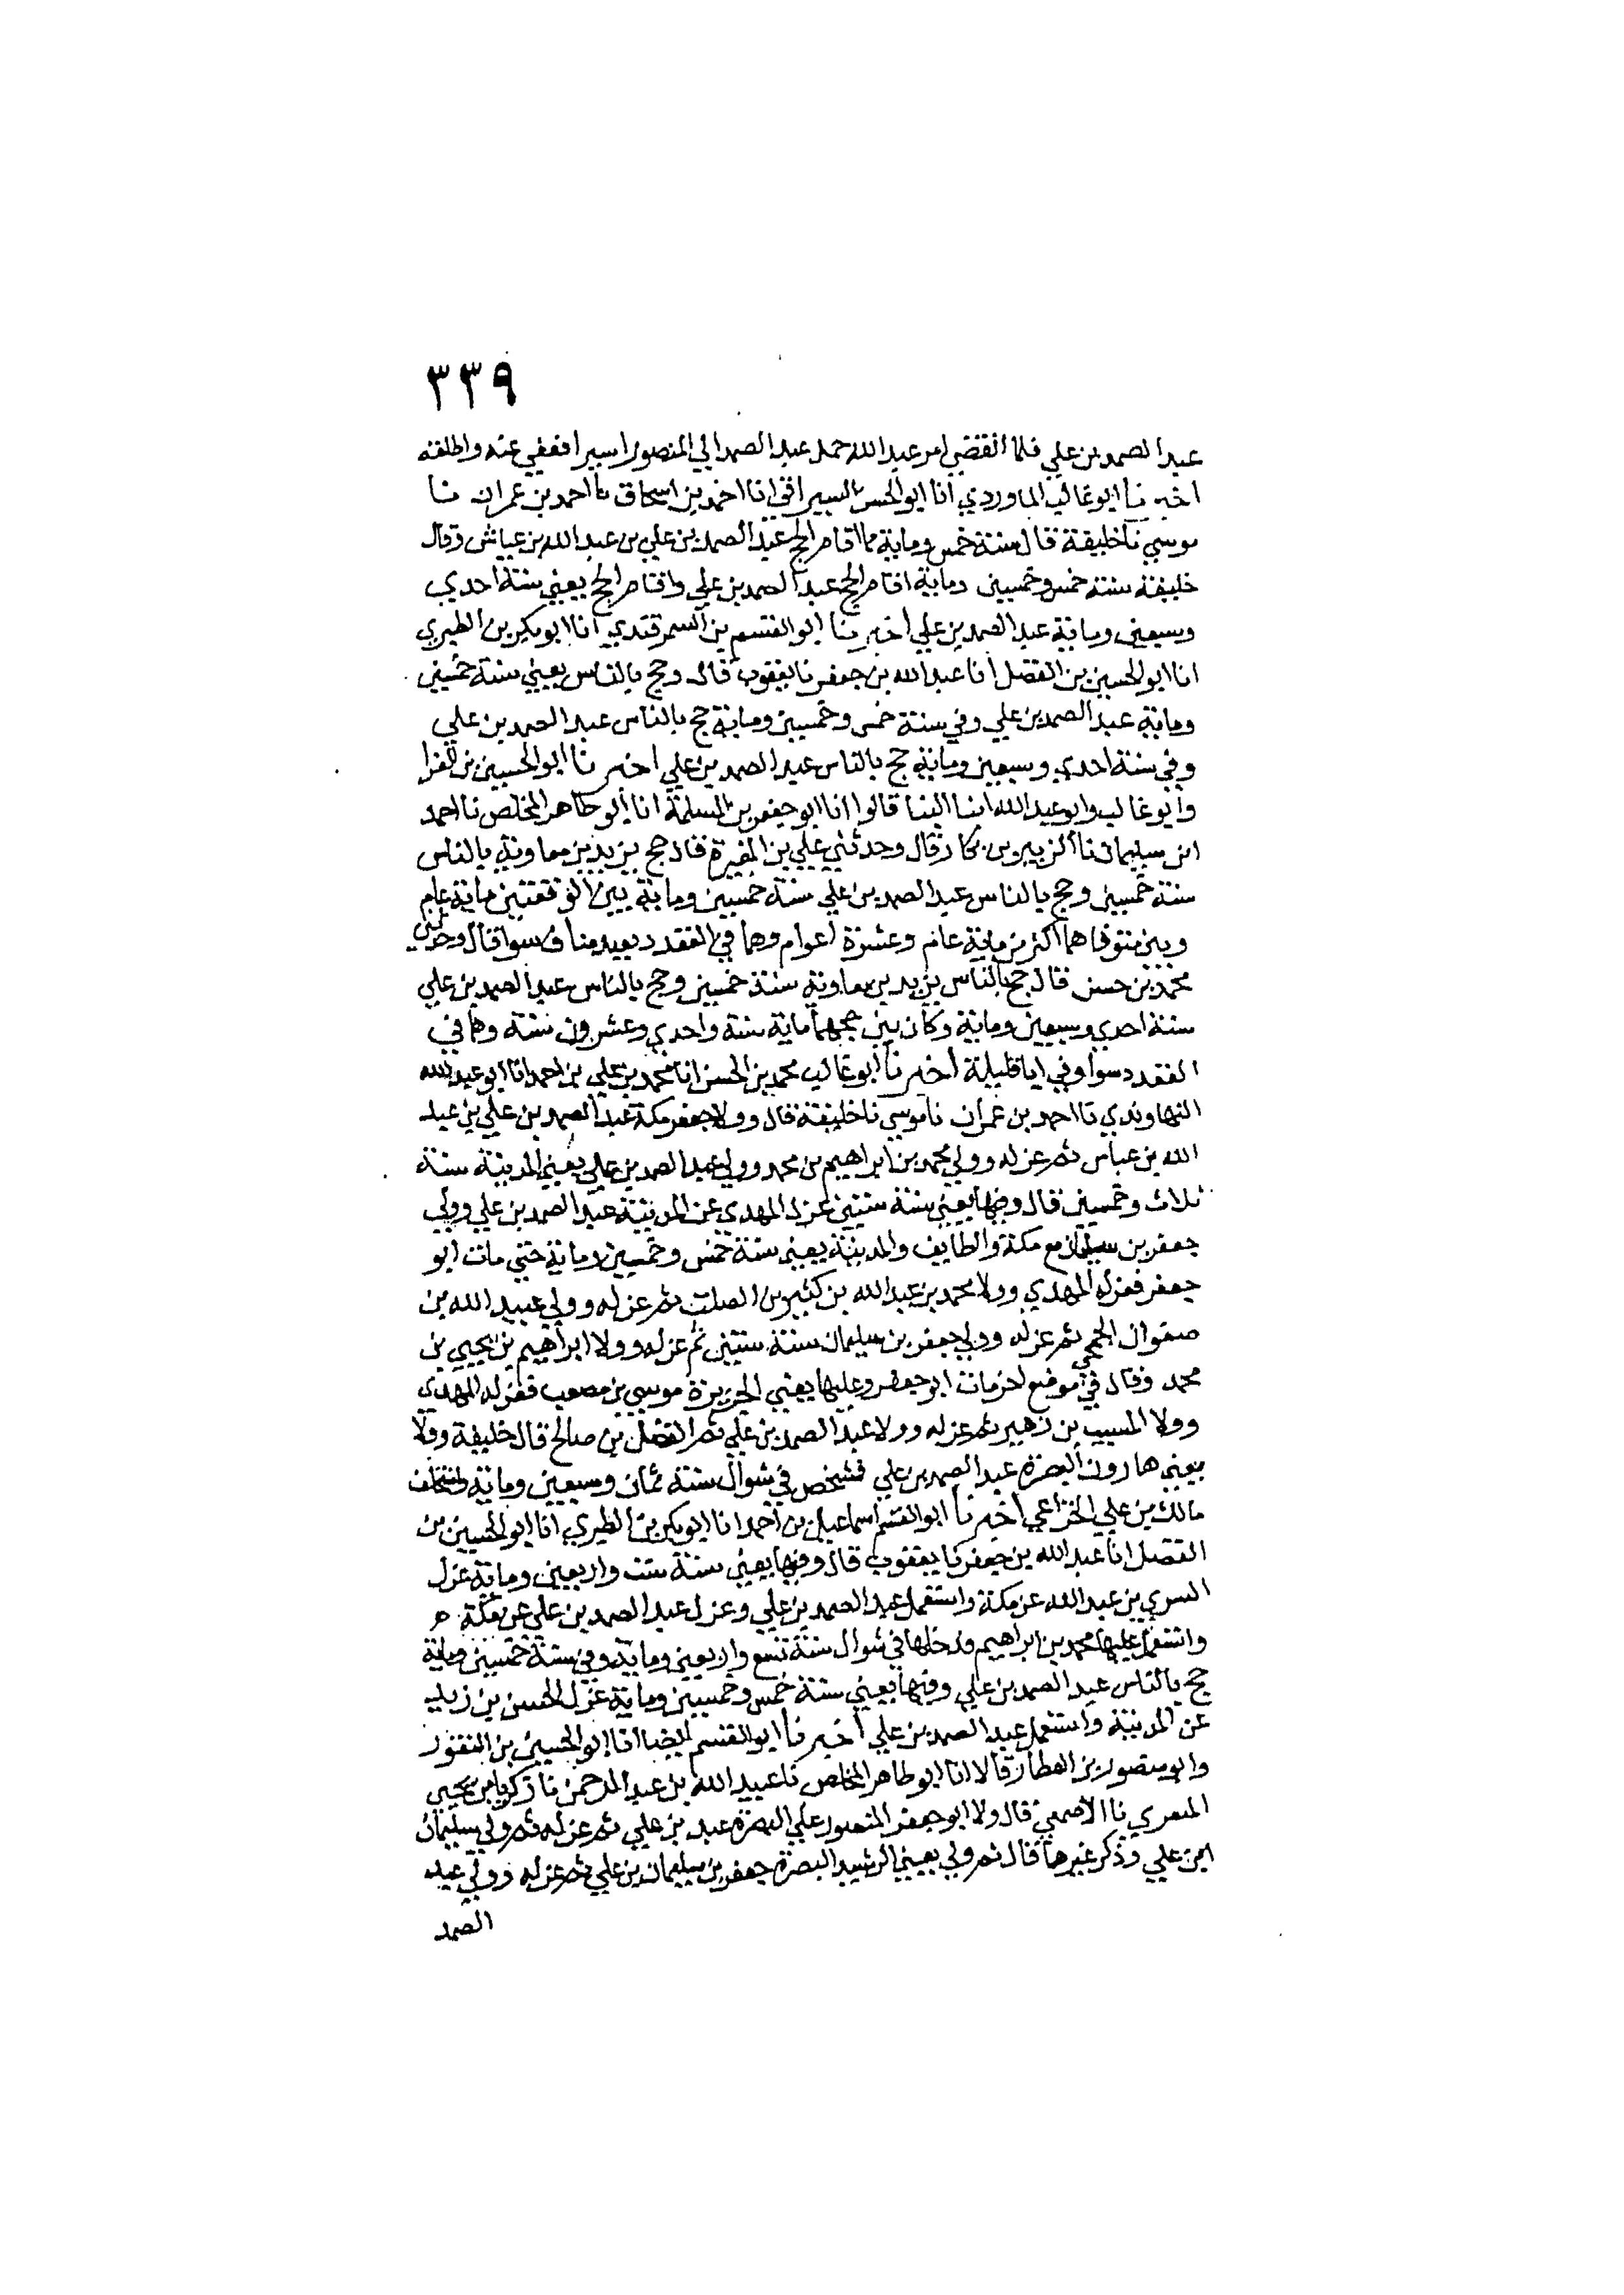 ٣٣٩
عبد الصمد بن علي فلما انقضى امر عبد الله حمل عبد الصمد الي المنصور اسيرا فعفي عنه واطلقه
اخبرنا ابو غالب الماوردي انا ابو الحسن السيرافي انا احمد بن اسحاق نا احمد بن عمران نا
موسي نا خليفة قال سنة خمس وماية مما اقام الحج عبد الصمد بن علي بن عبد الله بن عباس وقال
خليفة سنة خمس وخمسين وماية اقام الحج عبد الصمد بن علي واقام الحج يعني سنة احدي
وسبعين وماية عبد الصمد بن علي اخبرنا ابو القسم بن السمرقندي انا ابو بكر بن الطبري
انا ابو الحسين بن الفضل انا عبد الله بن جعفر نا يعقوب قال وحج بالناس يعني سنة خمسين
وماية عبد الصمد بن علي وفي سنة خمس وخمسين وماية حج بالناس عبد الصمد بن علي
وفي سنة احدي وسبعين وماية حج بالناس عبد الصمد بن علي اخبرنا ابو الحسين بن الفرا
وابو غالب وابو عبد الله ابنا البنا قالوا انا ابو جعفر بن المسلمة انا ابو طاهر المخلص نا احمد
ابن سليمان نا الزبير بن بكار قال وحدثني علي بن المغيرة قال حج يزيد بن معاوية بالناس
سنة خمسين وحج بالناس عبد الصمد بن علي سنة خمسين وماية بين الوقفتين ماية عام
وبين متوفاهما اكثر من ماية عام وعشرة اعوام وهما في القعدد بعبد مناف سوا قال وحدثني
محمد بن حسن قال حج بالناس يزيد بن معاوية سنة خمسين وحج بالناس عبد الصمد بن علي
سنة احدي وسبعين وماية وكان بين حجهما ماية سنة واحدي وعشرون سنة وهما في
القعدد سوا وفي اباقليلة اخبرنا ابو غالب محمد بن الحسن انا محمد بن علي بن احمد انا ابو عبد الله
النهاوندي نا احمد بن عمران نا موسي نا خليفة قال وولا جعفر مكة عبد الصمد بن علي بن عبد
الله بن عباس ثم عزله وولي محمد بن ابراهيم بن محمد وولي عبد الصمد بن علي يعني المدينة سنة
ثلاث وخمسين قال وفيها يعني سنة ستين عزل المهدي عن المدينة عبد الصمد بن علي وولي
جعفر بن سليمان مع مكة والطايف والمدينة يعني سنة خمس وخمسين وماية حتي مات ابو
جعفر فعزله المهدي وولا محمد بن عبد الله بن كثير بن الصلت ثم عزله وولي عبيد الله بن
صفوان الجمحي ثم عزله وولي جعفر بن سليمان سنة ستين ثم عزله وولا ابراهيم بن يحيي بن
محمد وقال في موضع اخر مات ابو جعفر وعليها يعني الجزيرة موسي بن مصعب فعزله المهدي
وولا المسيب بن زهير ثم عزله وولا عبد الصمد بن علي ثم الفضل بن صالح قال خليفة وولا
يعني هارون البصرة عبد الصمد بن علي فشخص في شوال سنة ثمان وسبعين وماية واستخلف
مالك بن علي الخزاعي اخبرنا ابو القسم اسماعيل بن احمد انا ابو بكر بن الطبري انا ابو الحسين بن
الفضل انا عبد الله بن جعفر نا يعقوب قال وفيها يعني سنة ست واربعين وماية عزل
السري بن عبد الله عن مكة واستعمل عبد الصمد بن علي وعزل عبد الصمد بن علي عن مكة
واستعمل عليها محمد بن ابراهيم فدخلها في شوال سنة تسع واربعين وماية وفي سنة خمسين وماية
حج بالناس عبد الصمد بن علي وفيها يعني سنة خمس وخمسين وماية عزل الحسن بن زيد
عن المدينة واستعمل عبد الصمد بن علي اخبرنا ابو القسم ايضا انا ابو الحسين بن النقور
وابو منصور بن العطار قالا انا ابو طاهر المخلص نا عبيد الله بن عبد الرحمن نا زكريا بن يحيي
المنقري نا الاصمعي قال ولا ابو جعفر المنصور علي البصرة عبد بن علي ثم عزله ثم ولي سليمان
ابن علي وذكر غيرها قال ثم ولي يعني الرشيد البصرة جعفر بن سليمان بن علي ثم عزله وولي عبد
الصمد